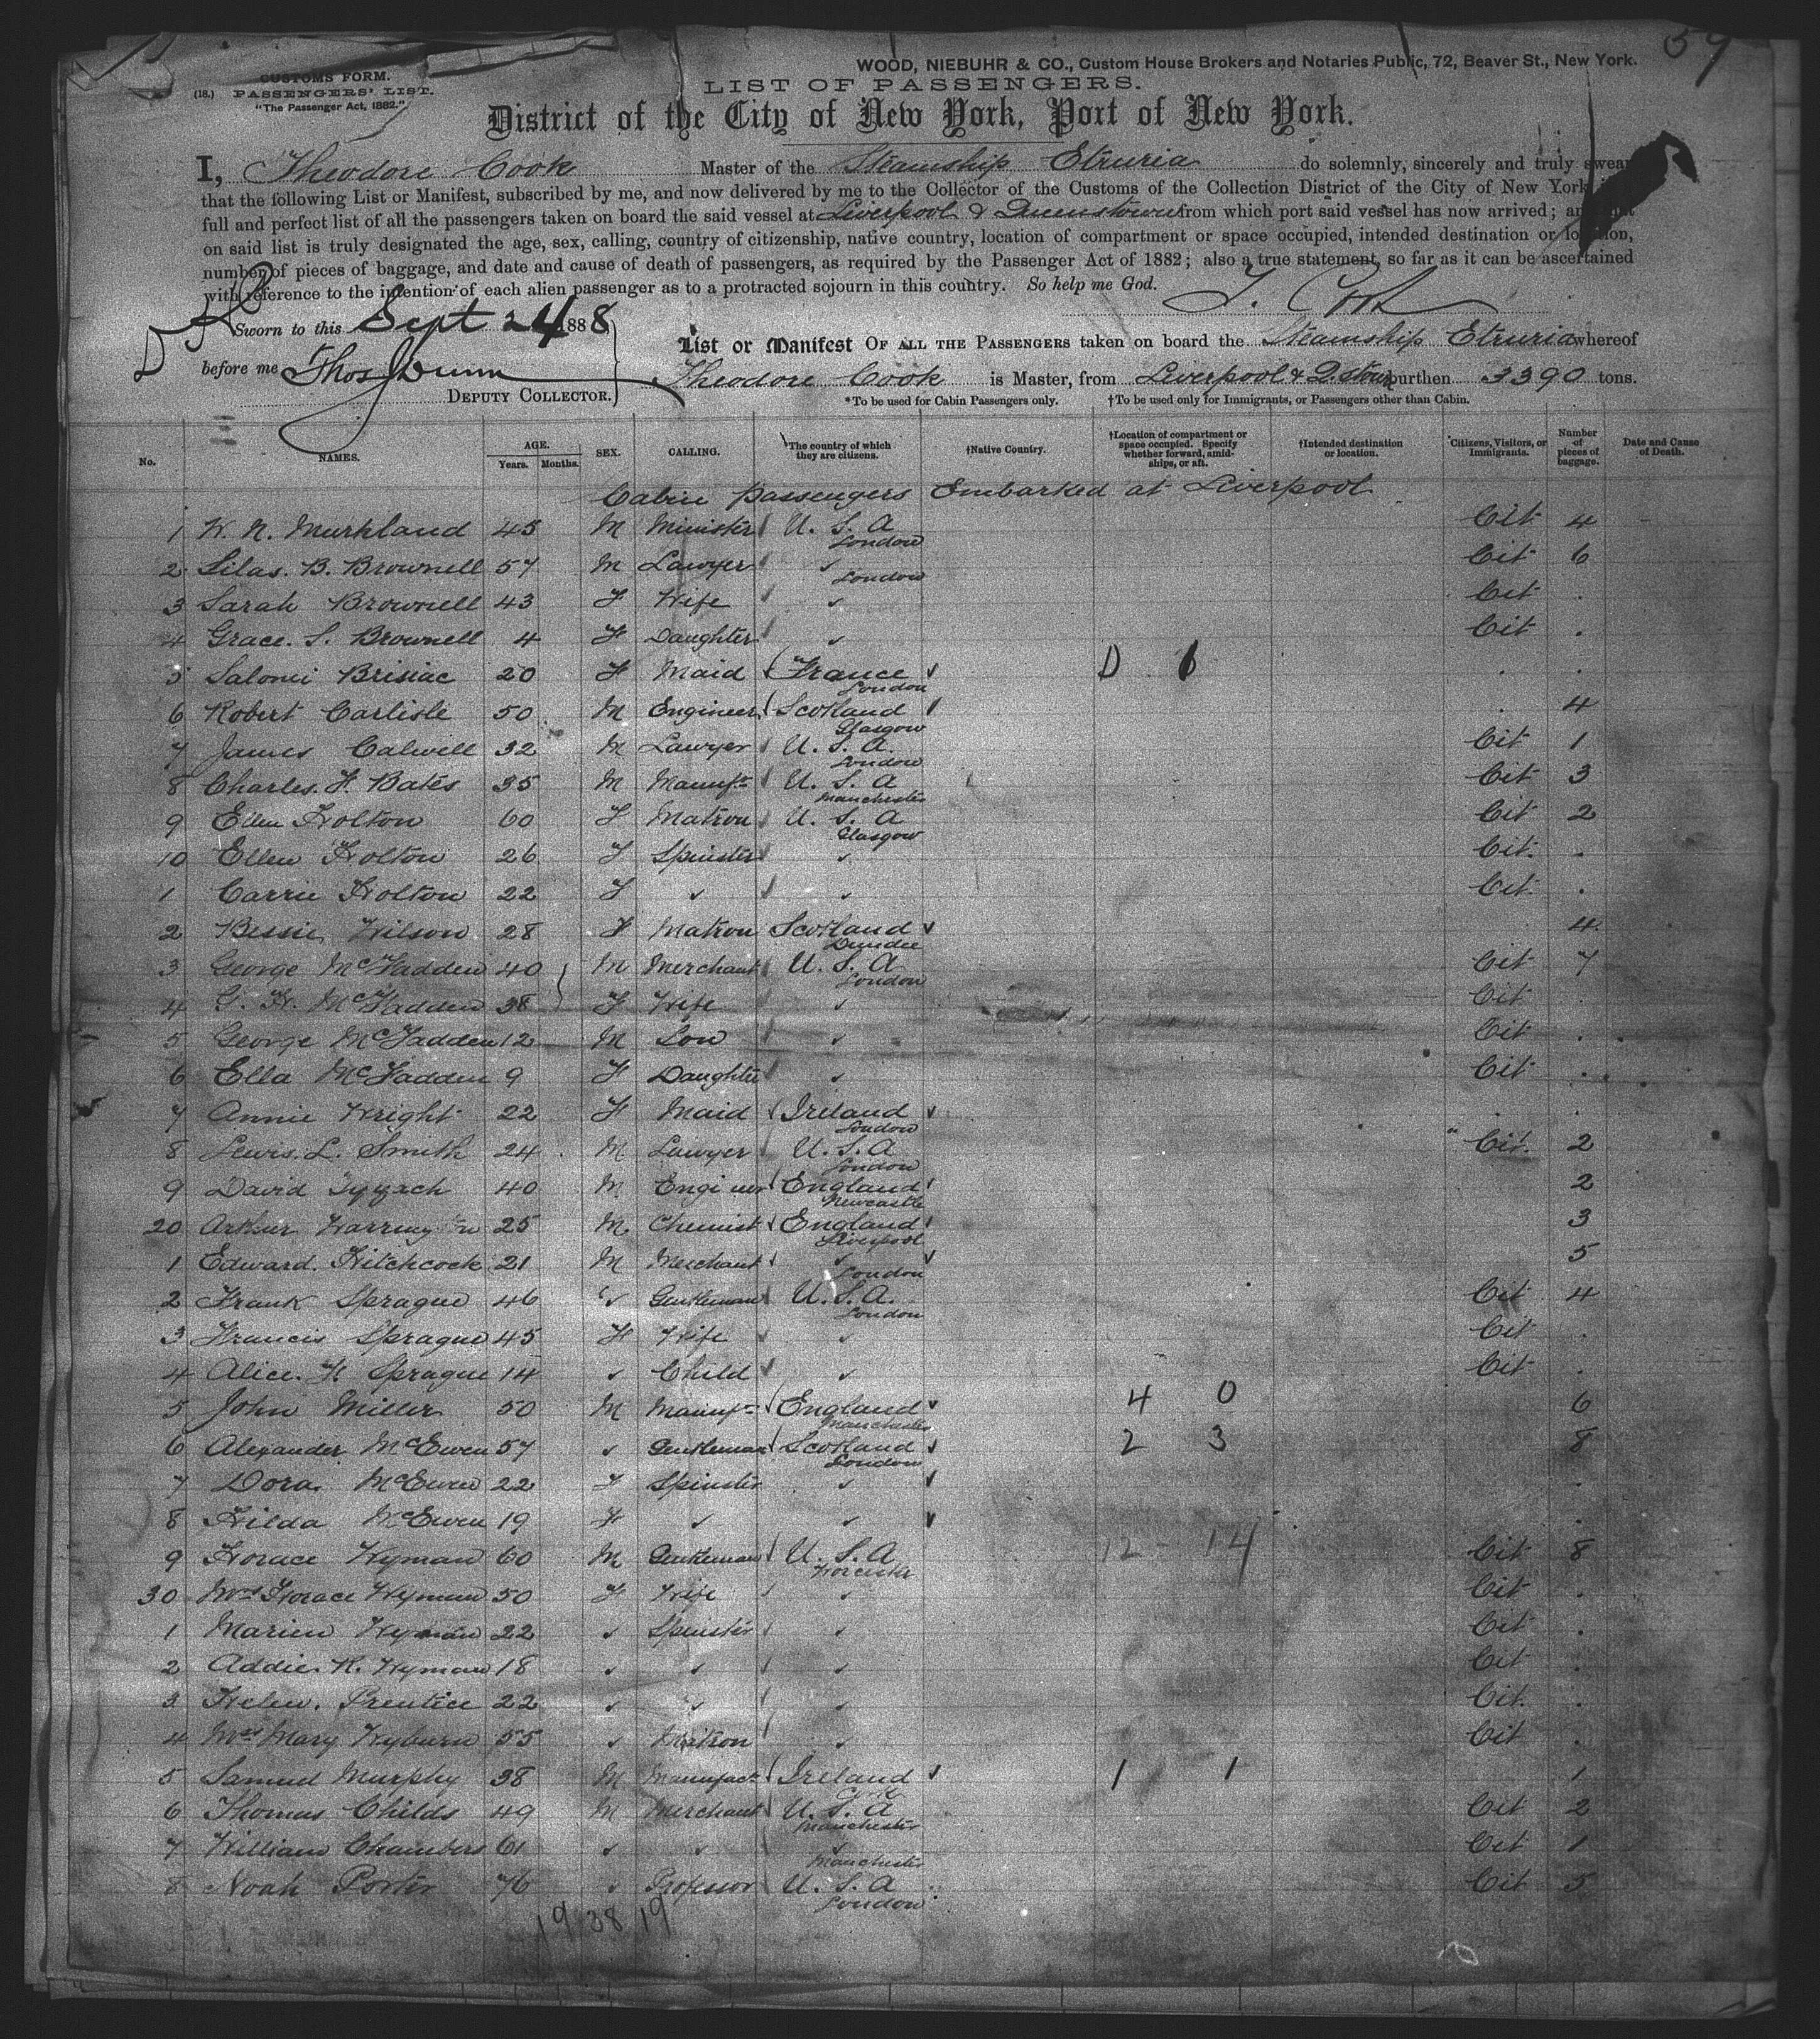 59
WOOD, NIEBUHR & CO., Custom House Brokers and Notaries Public, 72, Beaver St., New York.
(18.) CUSTOMS FORM.
PASSENGERS' LIST.
"The Passenger Act, 1882."
LIST OF PASSENGERS.
District of the City of New York, Port of New York.
I, Theodore Cook Master of the Steamship Etruria do solemnly, sincerely and truly swear
that the following List or Manifest, subscribed by me, and now delivered by me to the Collector of the Customs of the Collection District of the City of New York
full and perfect list of all the passengers taken on board the said vessel at Liverpool & Queenstown from which port said vessel has now arrived;
on said list is truly designated the age, sex, calling, country of citizenship, native country, location of compartment or space occupied, intended destination or location,
number of pieces of baggage, and date and cause of death of passengers, as required by the Passenger Act of 1882; also a true statement, so far as it can be ascertained
with reference to the intention of each alien passenger as to a protracted sojourn in this country. So help me God.
T. Cook
Sworn to this Sept 24 1888
before me Thos J Dunn
DEPUTY COLLECTOR.
List or Manifest OF ALL THE PASSENGERS taken on board the Steamship Etruria whereof
Theodore Cook is Master, from Liverpool & Qstown burthen 3390 tons.
*To be used for Cabin Passengers only. †To be used only for Immigrants, or Passengers other than Cabin.
No. NAMES. AGE. Years. Months. SEX. CALLING. *The country of which they are citizens. †Native Country. †Location of compartment or space occupied. Specify whether forward, amidships, or aft. †Intended destination or location. Citizens, Visitors, or Immigrants. Number of pieces of baggage. Date and Cause of Death.
Cabin passengers Embarked at Liverpool
1 W. N. Murkland 45 M Minister U. S. A London Cit 4
2 Silas. B. Brownell 57 M Lawyer ✓ London Cit 6
3 Sarah Brownell 43 F Wife ✓ Cit .
4 Grace. S. Brownell 4 F Daughter ✓ Cit .
5 Salomi Brisiac 20 F Maid France London D 1
6 Robert Carlisle 50 M Engineer Scotland Glasgow 4
7 James Calwell 32 M Lawyer U. S. A. London Cit 1
8 Charles. F. Bates 35 M Manufr U. S. A Manchester Cit 3
9 Ellen Holton 60 F Matron U. S. A Glasgow Cit 2
10 Ellen Holton 26 F Spinster ✓ Cit. .
1 Carrie Holton 22 F ✓ ✓ Cit. .
2 Bessie Wilson 28 F Matron Scotland Dundee 4
3 George McFadden 40 M Merchant U. S. A London Cit 7
4 G. H. McFadden 38 F Wife ✓ Cit .
5 George McFadden 12 M Son ✓ Cit .
6 Ella McFadden 9 F Daughter ✓ Cit .
7 Annie Wright 22 F Maid Ireland London
8 Lewis. L. Smith 24 M Lawyer U. S. A London Cit. 2
9 David Tyzach 40 M. Engineer England Newcastle 2
20 Arthur Warrington 25 M. Chemist England Liverpool 3
1 Edward. Hitchcock 21 M Merchant ✓ London 5
2 Frank Sprague 46 ✓ Gentleman U. S. A. London Cit 4
3 Francis Sprague 45 F Wife ✓ Cit .
4 Alice. H Sprague 14 ✓ Child ✓ Cit .
5 John Miller 50 M Manufr England Manchester 4 0 6
6 Alexander McEwen 57 ✓ Gentleman Scotland London 2 3 8
7 Dora. McEwen 22 F Spinster ✓ .
8 Hilda McEwen 19 F ✓ ✓ .
9 Horace Wyman 60 M Gentleman U. S. A Worcester 12 - 14 Cit 8
30 Mrs Horace Wyman 50 F Wife ✓ Cit .
1 Marien Wyman 22 ✓ Spinster ✓ Cit .
2 Addie. R. Wyman 18 ✓ ✓ ✓ Cit .
3 Helen. Prentice 22 ✓ ✓ ✓ Cit. .
4 Mrs Mary Wyburn 55 ✓ Matron ✓ Cit .
5 Samuel Murphy 38 M Manufacr Ireland Cork 1 1 1
6 Thomas Childs 49 M Merchant U. S. A Manchester Cit 2
7 William Chambers 61 ✓ ✓ ✓ Manchester Cit 1
8 Noah Porter 76 ✓ Professor U. S. A London Cit 5
19 38 19